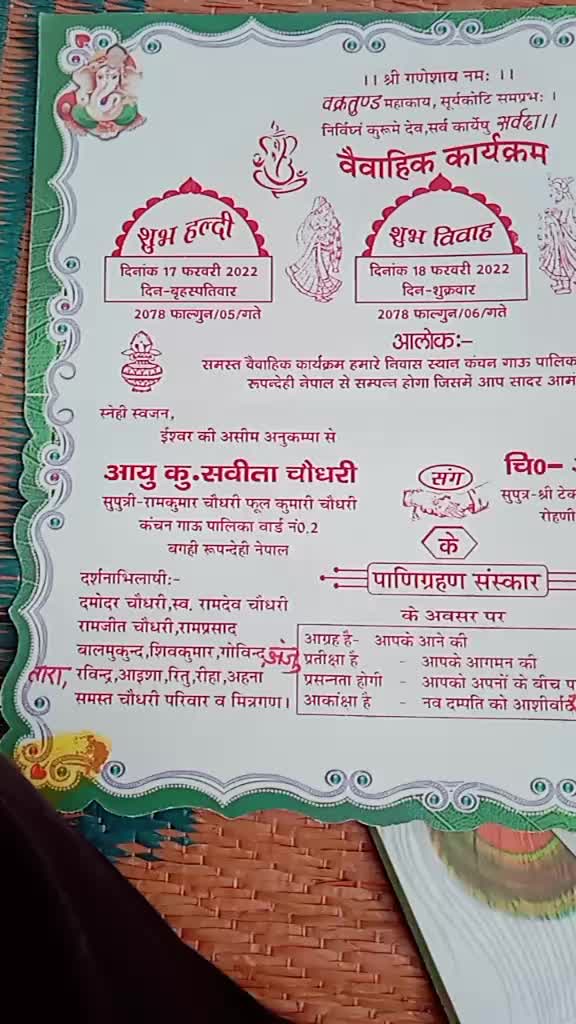 ।। श्री गणेशाय नमः ।।
वक्रतुण्ड महाकाय, सूर्यकोटि समप्रभः ।
निर्विघ्नं कुरूमे देव,सर्व कार्येषु सर्वदा।।
वैवाहिक कार्यक्रम
शुभ हल्दी
दिनांक 17 फरवरी 2022
दिन-बृहस्पतिवार
2078 फाल्गुन/05/गते
शुभ विवाह
दिनांक 18 फरवरी 2022
दिन-शुक्रवार
2078 फाल्गुन/06/गते
आलोकः-
समस्त वैवाहिक कार्यक्रम हमारे निवास स्थान कंचन गाऊ पालिक
रूपन्देही नेपाल से सम्पन्न होगा जिसमें आप सादर आम
स्नेही स्वजन,
ईश्वर की असीम अनुकम्पा से
आयु कु.सवीता चौधरी
सुपुत्री-रामकुमार चौधरी फूल कुमारी चौधरी
कंचन गाऊ पालिका वार्ड नं0.2
बगही रूपन्देही नेपाल
संग
चि0-
सुपुत्र-श्री टेक
रोहणी
के
पाणिग्रहण संस्कार
के अवसर पर
दर्शनाभिलाषी:-
दमोदर चौधरी,स्व. रामदेव चौधरी
रामजीत चौधरी,रामप्रसाद
बालमुकुन्द,शिवकुमार,गोविन्द,अंजु
तारा, रविन्द्र,आइशा,रितु,रीहा,अहना
समस्त चौधरी परिवार व मित्रगण।
आग्रह है- आपके आने की
प्रतीक्षा है - आपके आगमन की
प्रसन्नता होगी - आपको अपनों के बीच प
आकांक्षा है - नव दम्पति को आशीर्वाद